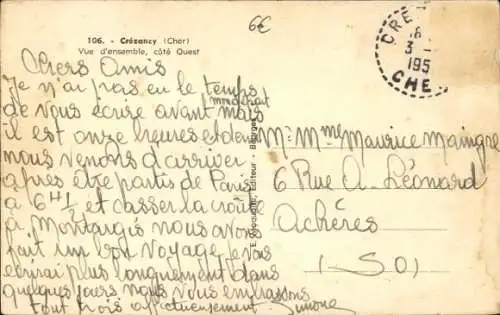 6€
106. - Crézancy (Cher)
Vue d'ensemble, côté Ouest
CRE
8
3 -
195
CHE
Chers Amis
Je n'ai pas eu le temps
de vous écrire avant mais
maintenant
il est onze heures et demi
nous venons d'arriver
après être partis de Paris
à 6 H ½ et casser la croûte
à Montargis nous avons
fait un bon voyage je vous
écrirai plus longuement dans
quelques jours nous vous embrassons
tout trois affectueusement Simone
Editeur - Bourges
Mr Mme Maurice Maingre
6 Rue A. Léonard
Achères
(S O)